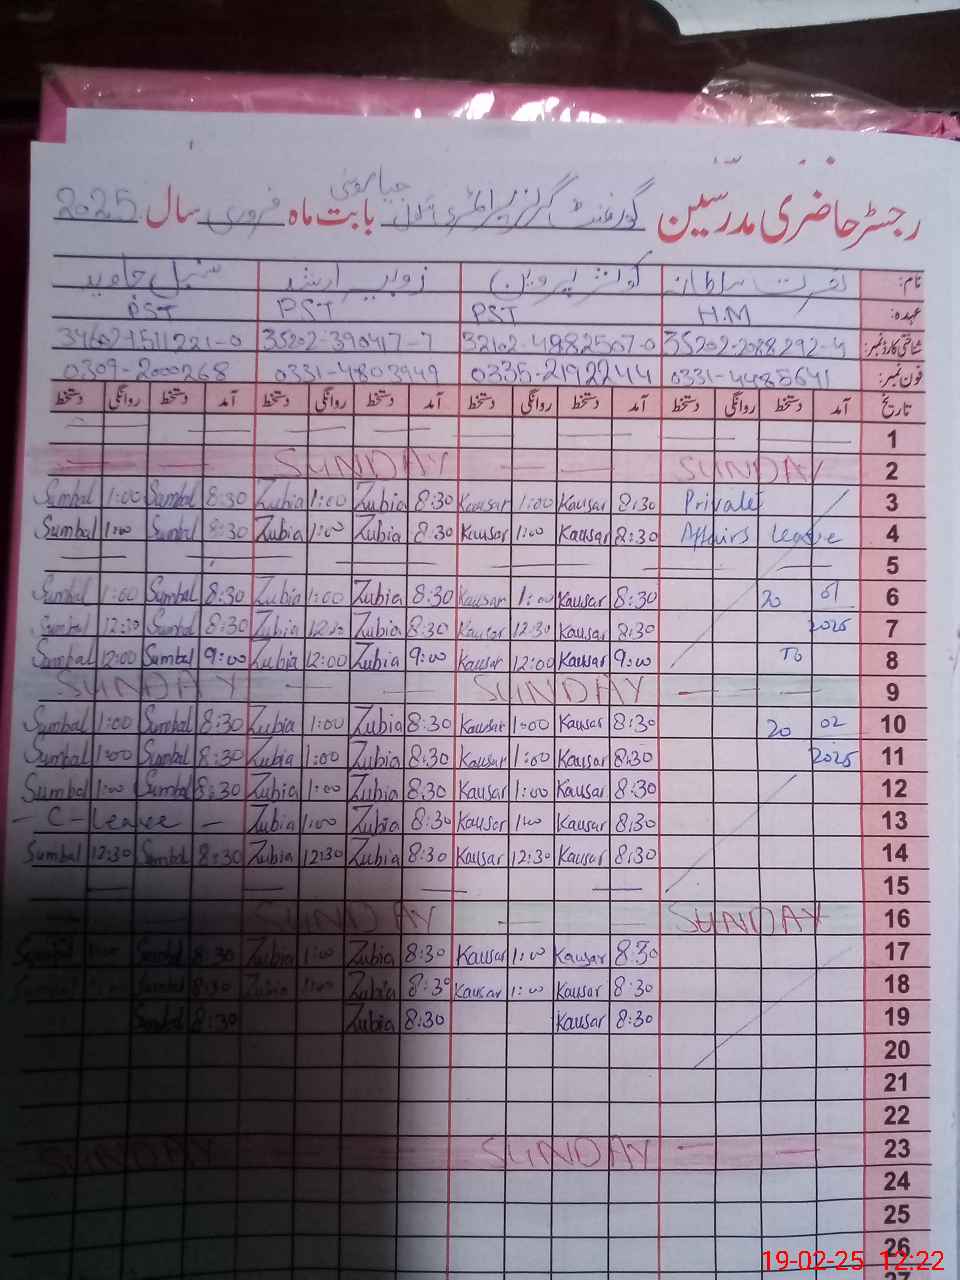 رجسٹر حاضری مدرسین گورنمنٹ گرلز پرائمری بابت ماہ فروری سال 2025
نام: نصرت سلطانہ کوثر پروین زوبیہ ارشد سنبل جاوید
عہدہ: H.M PST PST PST
شناختی کارڈ نمبر: 35202-2088292-4 32102-4982507-0 35202-390417-7
فون نمبر: 0331-4485641 0335-2192244 0331-4803949 0309-2000268
تاریخ آمد دستخط روانگی دستخط آمد دستخط روانگی دستخط آمد دستخط روانگی دستخط آمد دستخط روانگی دستخط
— — — — — — — — 1
— — SUNDAY — — SUNDAY 2
Sumbal 1:00 Sumbal 8:30 Zubia 1:00 Zubia 8:30 Kausar 1:00 Kausar 8:30 Private 3
Sumbal 1:00 Sumbal 8:30 Zubia 1:00 Zubia 8:30 Kausar 1:00 Kausar 8:30 Affairs leave 4
— — — — — — 5
Sumbal 1:00 Sumbal 8:30 Zubia 1:00 Zubia 8:30 Kausar 1:00 Kausar 8:30 20 01 6
Sumbal 12:30 Sumbal 8:30 Zubia 12:30 Zubia 8:30 Kausar 12:30 Kausar 8:30 2025 7
Sumbal 12:00 Sumbal 9:00 Zubia 12:00 Zubia 9:00 Kausar 12:00 Kausar 9:00 To 8
SUNDAY — — SUNDAY — — — 9
Sumbal 1:00 Sumbal 8:30 Zubia 1:00 Zubia 8:30 Kausar 1:00 Kausar 8:30 20 02 10
Sumbal 1:00 Sumbal 8:30 Zubia 1:00 Zubia 8:30 Kausar 1:00 Kausar 8:30 2025 11
Sumbal 1:00 Sumbal 8:30 Zubia 1:00 Zubia 8:30 Kausar 1:00 Kausar 8:30 12
- C - Leave - Zubia 1:00 Zubia 8:30 Kausar 1:00 Kausar 8:30 13
Sumbal 12:30 Sumbal 8:30 Zubia 12:30 Zubia 8:30 Kausar 12:30 Kausar 8:30 14
— — — — 15
— — SUNDAY — — SUNDAY 16
Sumbal 1:00 Sumbal 8:30 Zubia 1:00 Zubia 8:30 Kausar 1:00 Kausar 8:30 17
Sumbal 1:00 Sumbal 8:30 Zubia 1:00 Zubia 8:30 Kausar 1:00 Kausar 8:30 18
Sumbal 8:30 Zubia 8:30 Kausar 8:30 19
20
21
22
SUNDAY — — SUNDAY — — 23
24
25
26
19-02-25 12:22
27